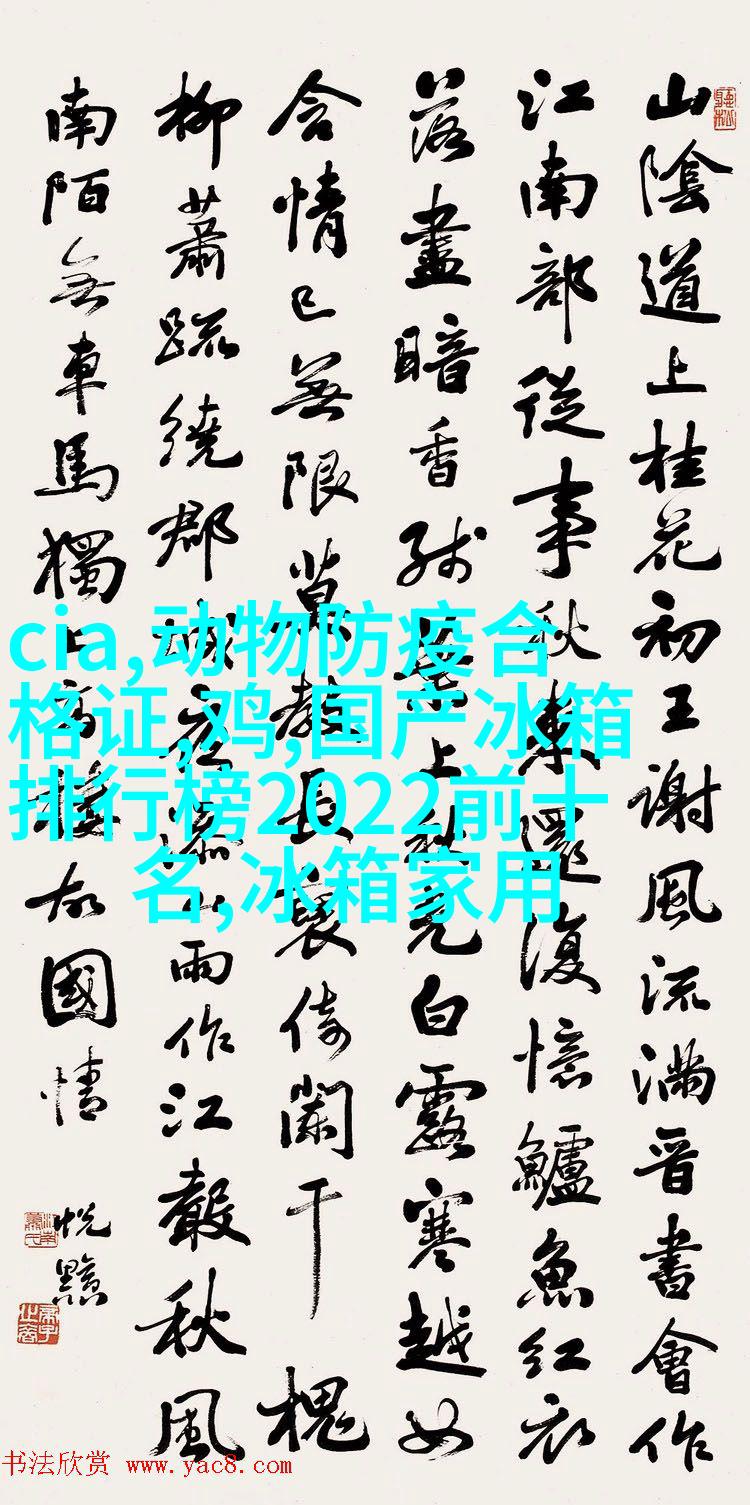 山陰道上桂花初王謝風流滿晋書會作
江南部從事秋來還復憶鱸魚紅衣
落盡暗香殘葉上秋光白露寒越女
含情已無限莫教長袖倚闌干槐
柳蕭疏繞郡城夜添山雨作江聲秋風
南陌無車馬獨上高樓故國情
cia,动物防疫合
格证,鸡,国产冰箱
排行榜2022前十
名,冰箱家用
书法欣赏 www.yac8.com